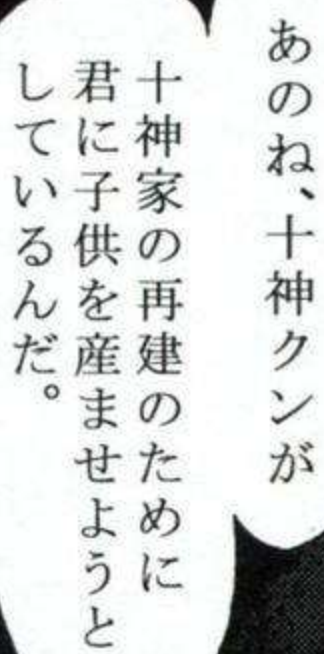 あのね、十神クンが
十神家の再建のために
君に子供を産ませようと
しているんだ。